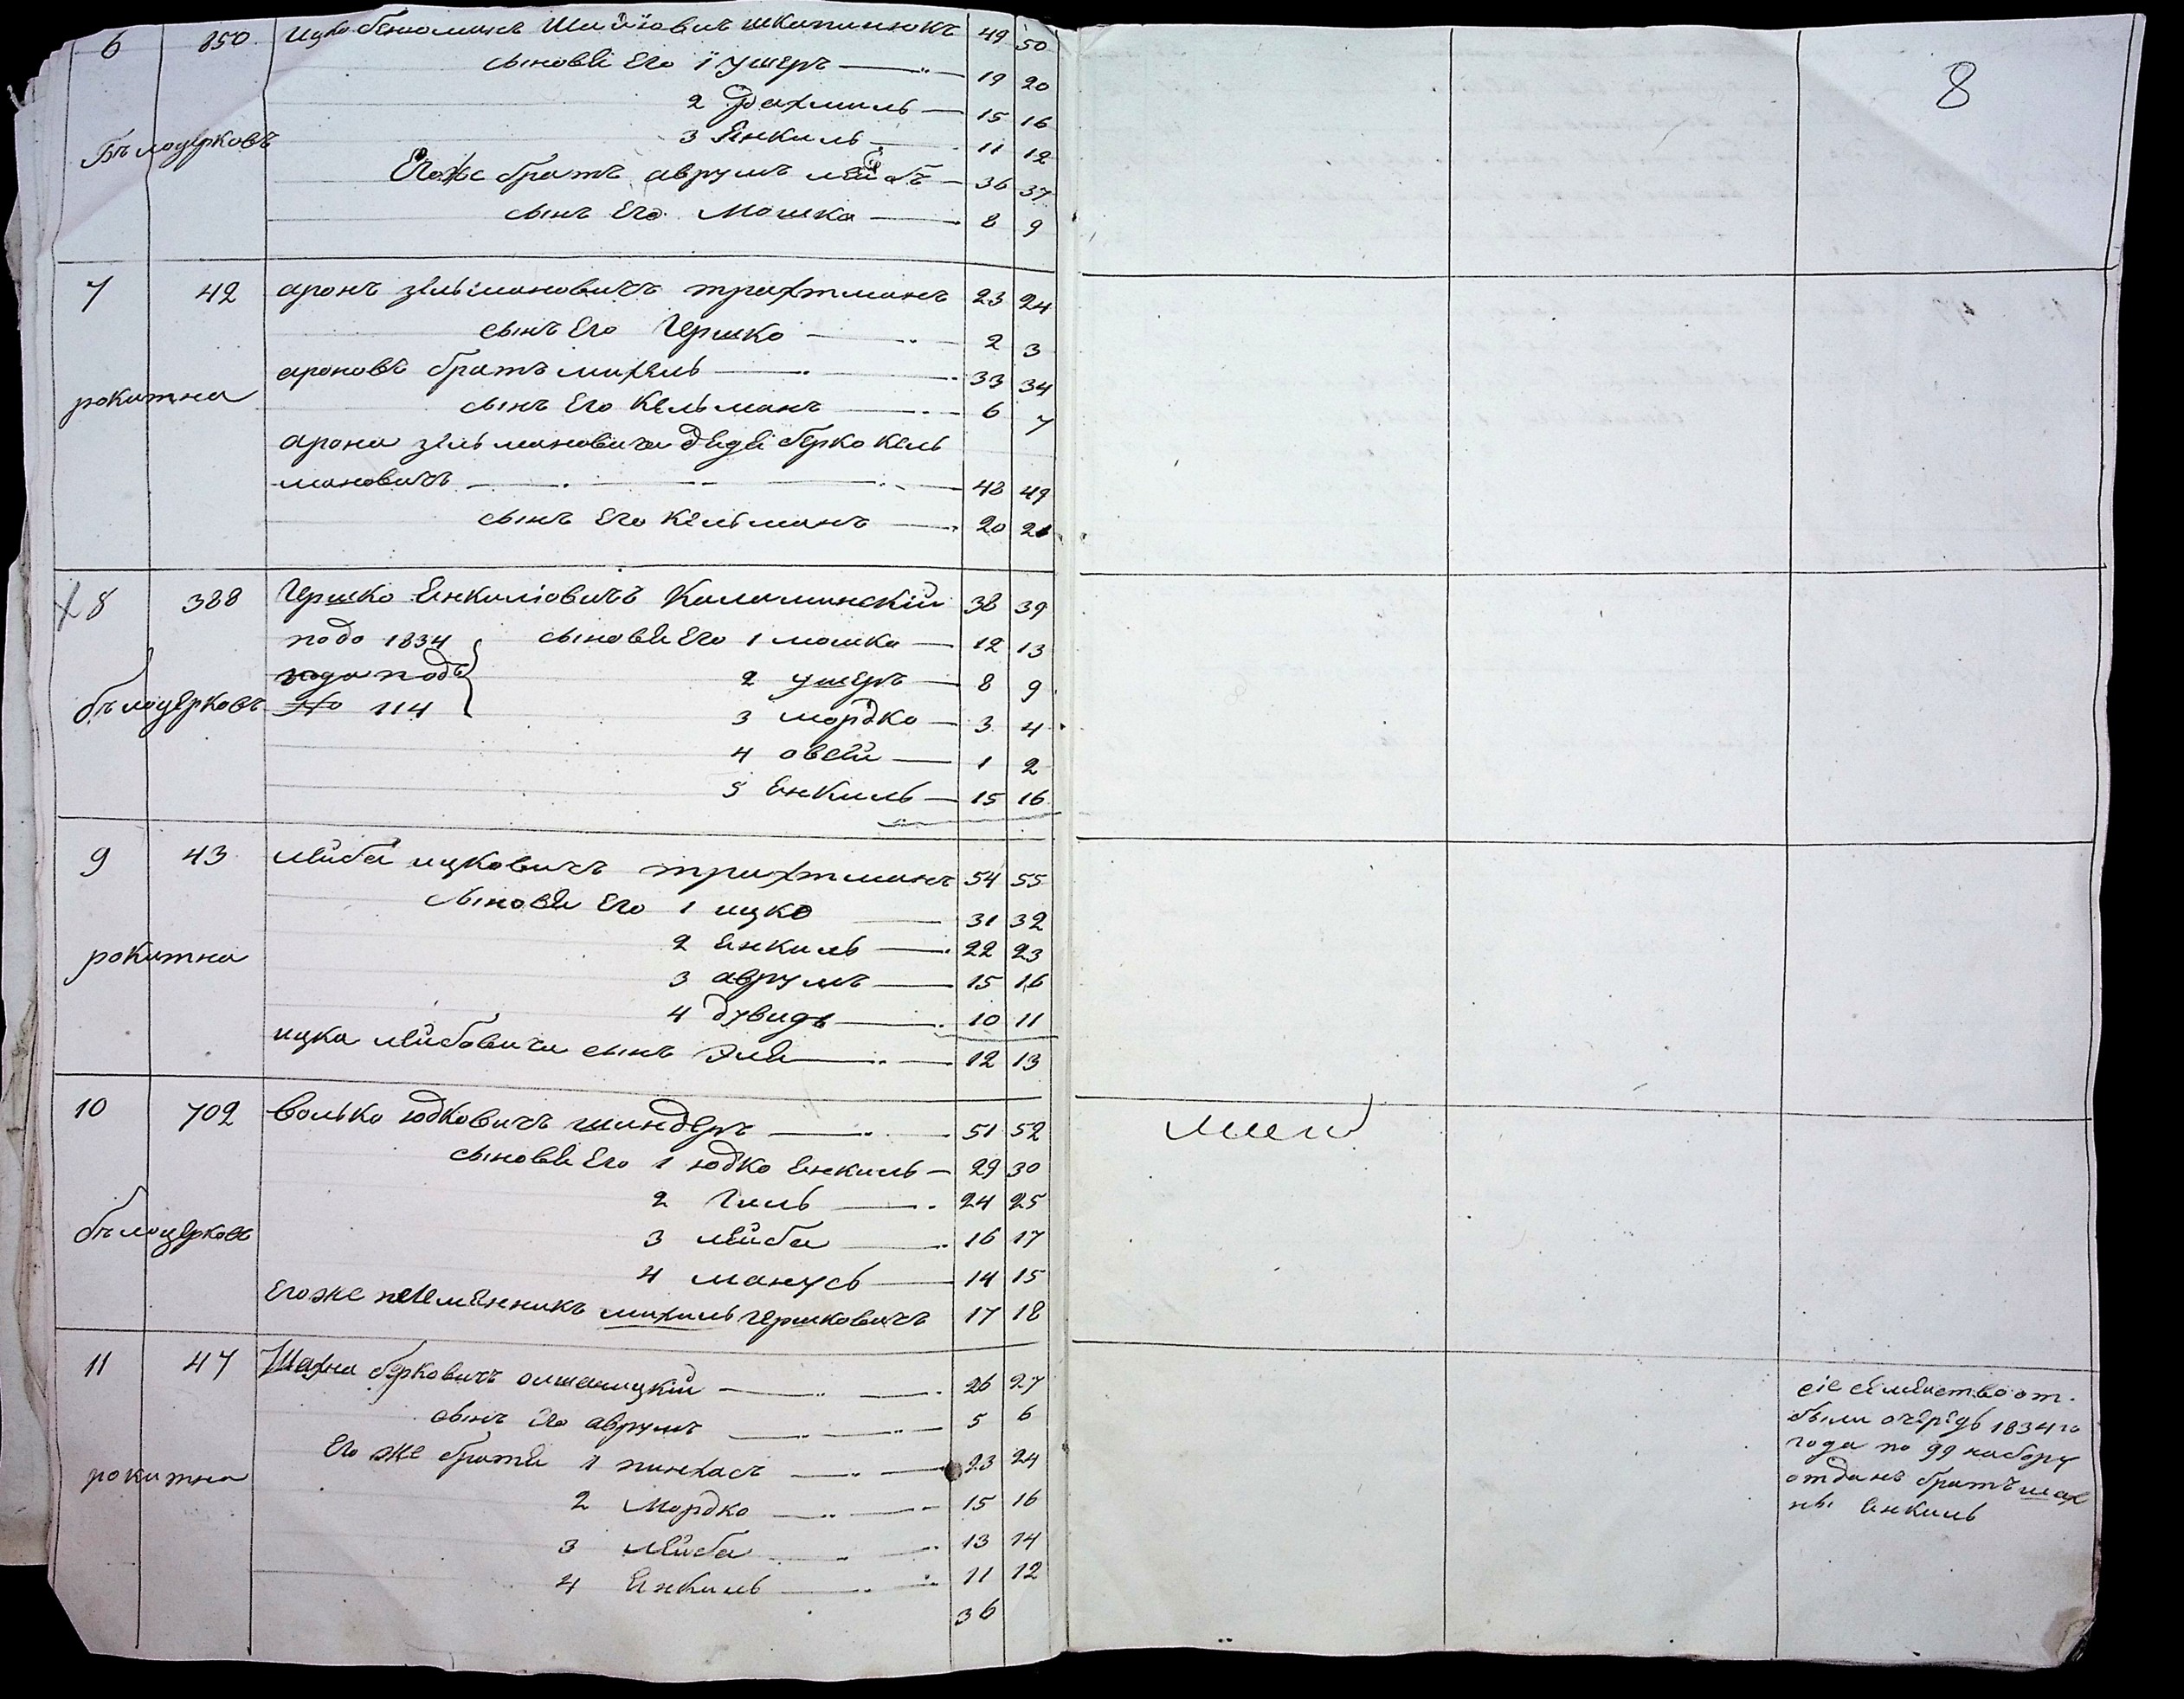 6 850 Ицко бениоминъ Шмійовичъ шкапинюкъ 49 50
сыновѣ Его 1 ушеръ 19 20
2 рахмиль 15 16
3 Енкиль 11 12
Бѣлоцерковъ
Егоже братъ аврумъ лейбъ 36 37
сынъ Его Мошка 8 9
7 42 аронъ зельмановичъ трахтманъ 23 24
сынъ Его Гершко 2 3
ароновъ братъ михель 33 34
рокитна
сынъ Его Кельманъ 6 7
арона зельмановича дядя берко кель
мановичъ 48 49
сынъ Его Кельманъ 20 21
8 388 Гершко Енкиліовичъ Калатинскій 38 39
подо 1834 сыновѣ Его 1 мошка 12 13
года подъ 2 ушеръ 8 9
бѣлоцерковъ № 114 3 мордко 3 4
4 овсѣй 1 2
5 Енкиль 15 16
9 43 лейба ицковичъ трахтманъ 54 55
сыновѣ Его 1 ицко 31 32
2 Енкиль 22 23
рокитна
3 аврумъ 15 16
4 дувидъ 10 11
ицка лейбовича сынъ Эля 12 13
10 702 волько юдковичъ шиндеръ 51 52
сыновѣ Его 1 юдко Енкиль 29 30
2 Гиль 24 25
бѣлоцерковъ
3 лейба 16 17
4 манусь 14 15
Егоже племенникъ михиль Гершковичъ 17 18
11 47 Шахна берковичъ олшаницкій 26 27
сынъ Его аврумъ 5 6
Его же братя 1 пинхасъ 23 24
рокитна
2 Мордко 15 16
3 лейба 13 14
4 Енкиль 11 12
36
8
сіе семейство от
были очередь 1834го
года по 99 набору
отданъ братъ шах
ны Енкиль